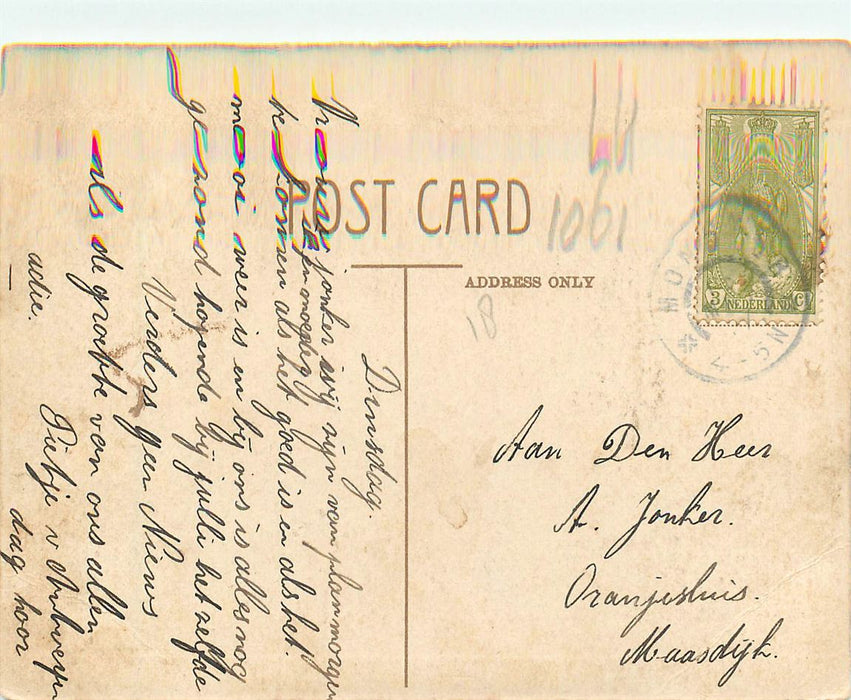 POST CARD
ADDRESS ONLY
1061
18
3 NEDERLAND C
Dinsdag.
Vrouw jonker wij zijn van plan morgen
ik en moeder
te komen als het goed is en als het
mooi weer is en bij ons is alles nog
gezond hopende bij jullie het zelfde
Verders geen Nieuws
als de groete van ons allen
Pietje v
adie. dag hoor
Aan Den Heer
A. Jonker.
Oranjesluis.
Maasdijk.